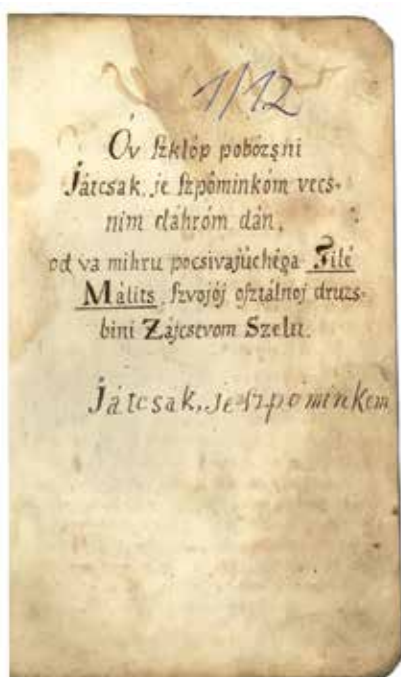 1/12
Ov szklop pobózsni
Játcsak, je szpôminkóm vecs-
nim dáhróm dán,
od va mihru pocsivajúchéga Filé
Málits, szvojój osztálnoj druzs-
bini Zájcsevom Szelu.
Játcsak, je szpominkem